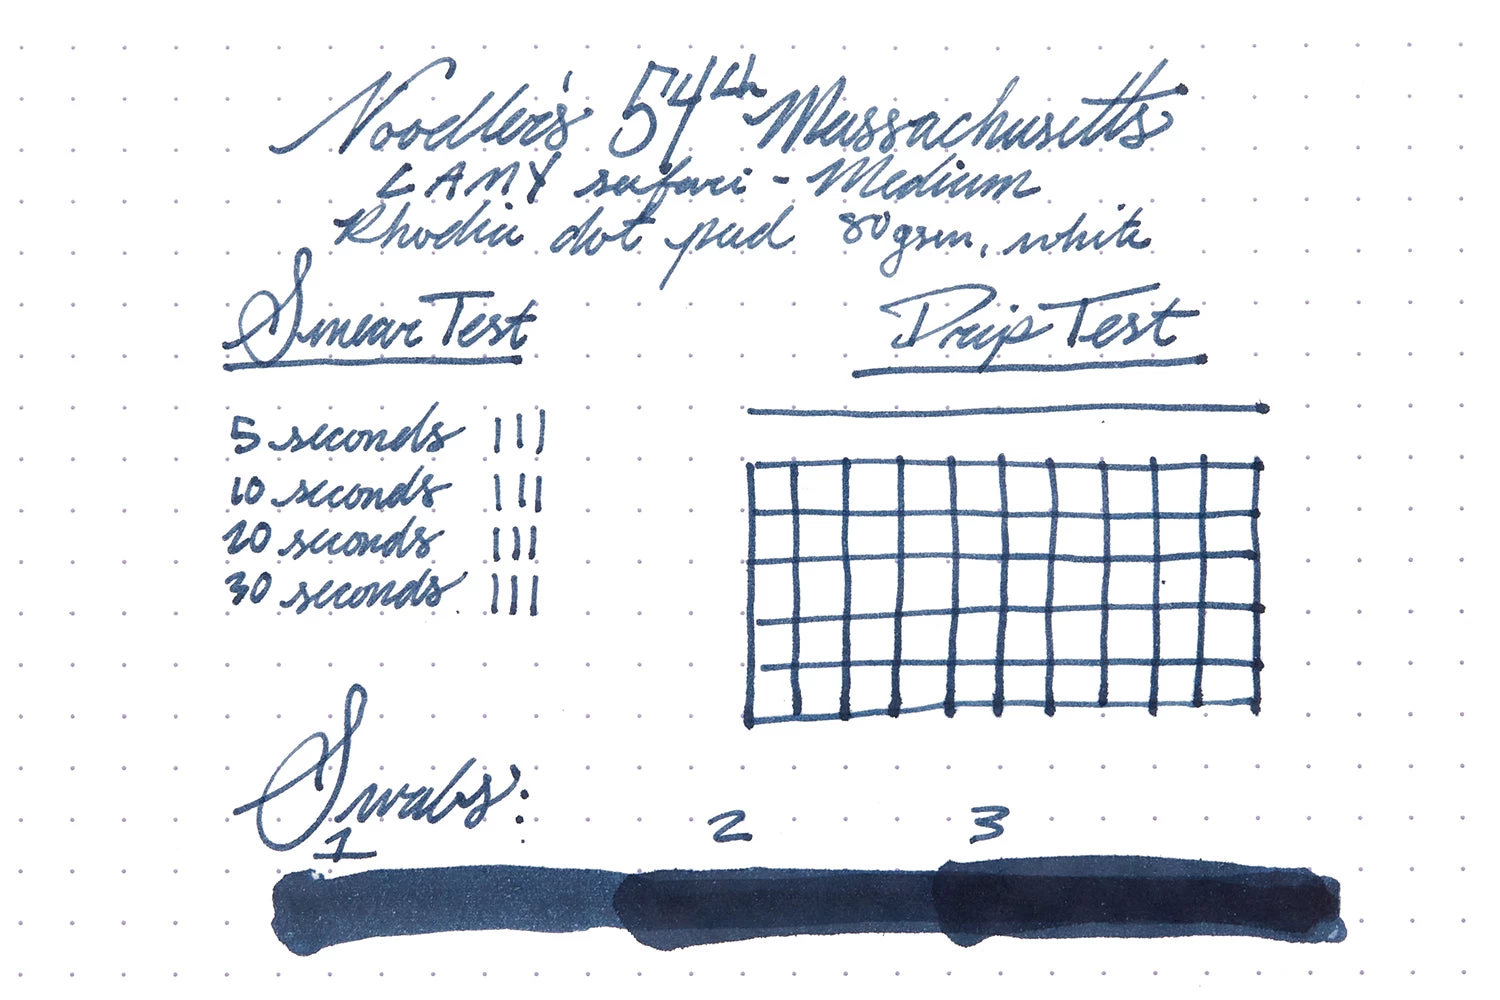 Noodler's 54th Massachusetts
LAMY safari - Medium
Rhodia dot pad 80gsm, white
Smear Test
Drip Test
5 seconds
10 seconds
20 seconds
30 seconds
Swabs:
1 2 3